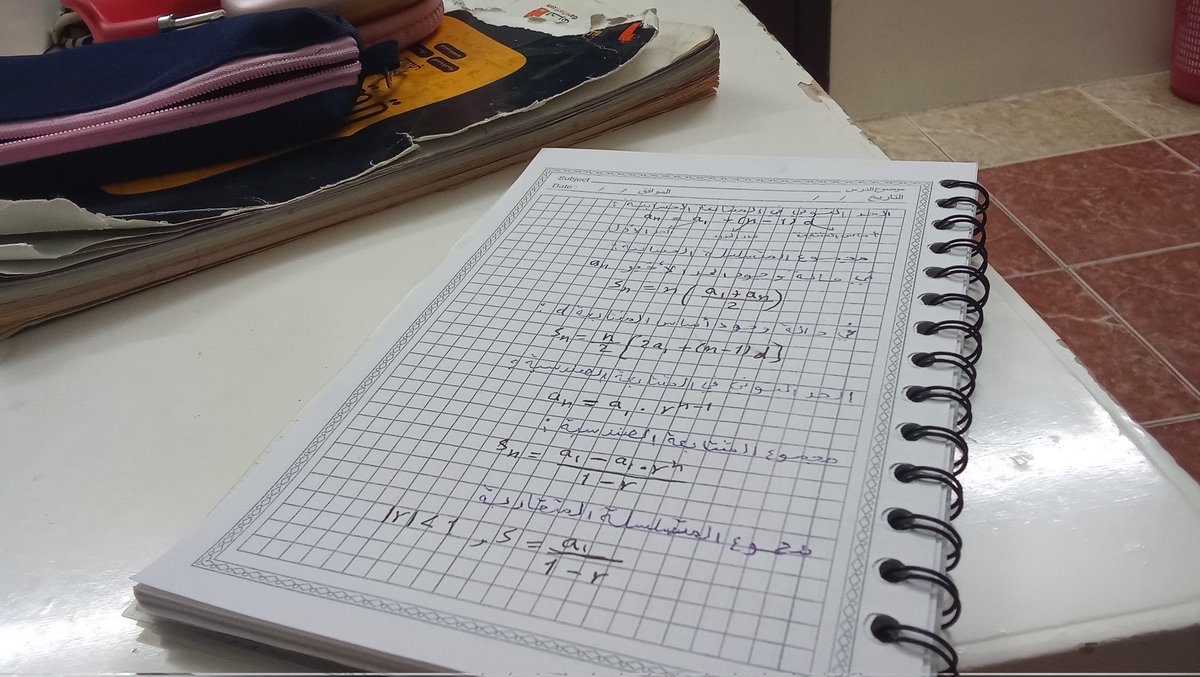 Subject موضوع الدرس
Date / / الموافق / / التاريخ
الحد النوني في المتتابعة الحسابية :
an = a1 + (n-1) d
الحد الأول
مجموع المتسلسلة الحسابية :
في حالة وجود الحد الأخير an
Sn = n ( a1 + an / 2 )
في حالة وجود أساس المتتابعة d :
Sn = n/2 [2a1 + (n-1) d]
الحد النوني في المتتابعة الهندسية :
an = a1 . r^n-1
مجموع المتتابعة الهندسية :
Sn = a1 - a1 . r^n / 1 - r
مجموع المتسلسلة المتقاربة
|r| < 1 , S = a1 / 1 - r